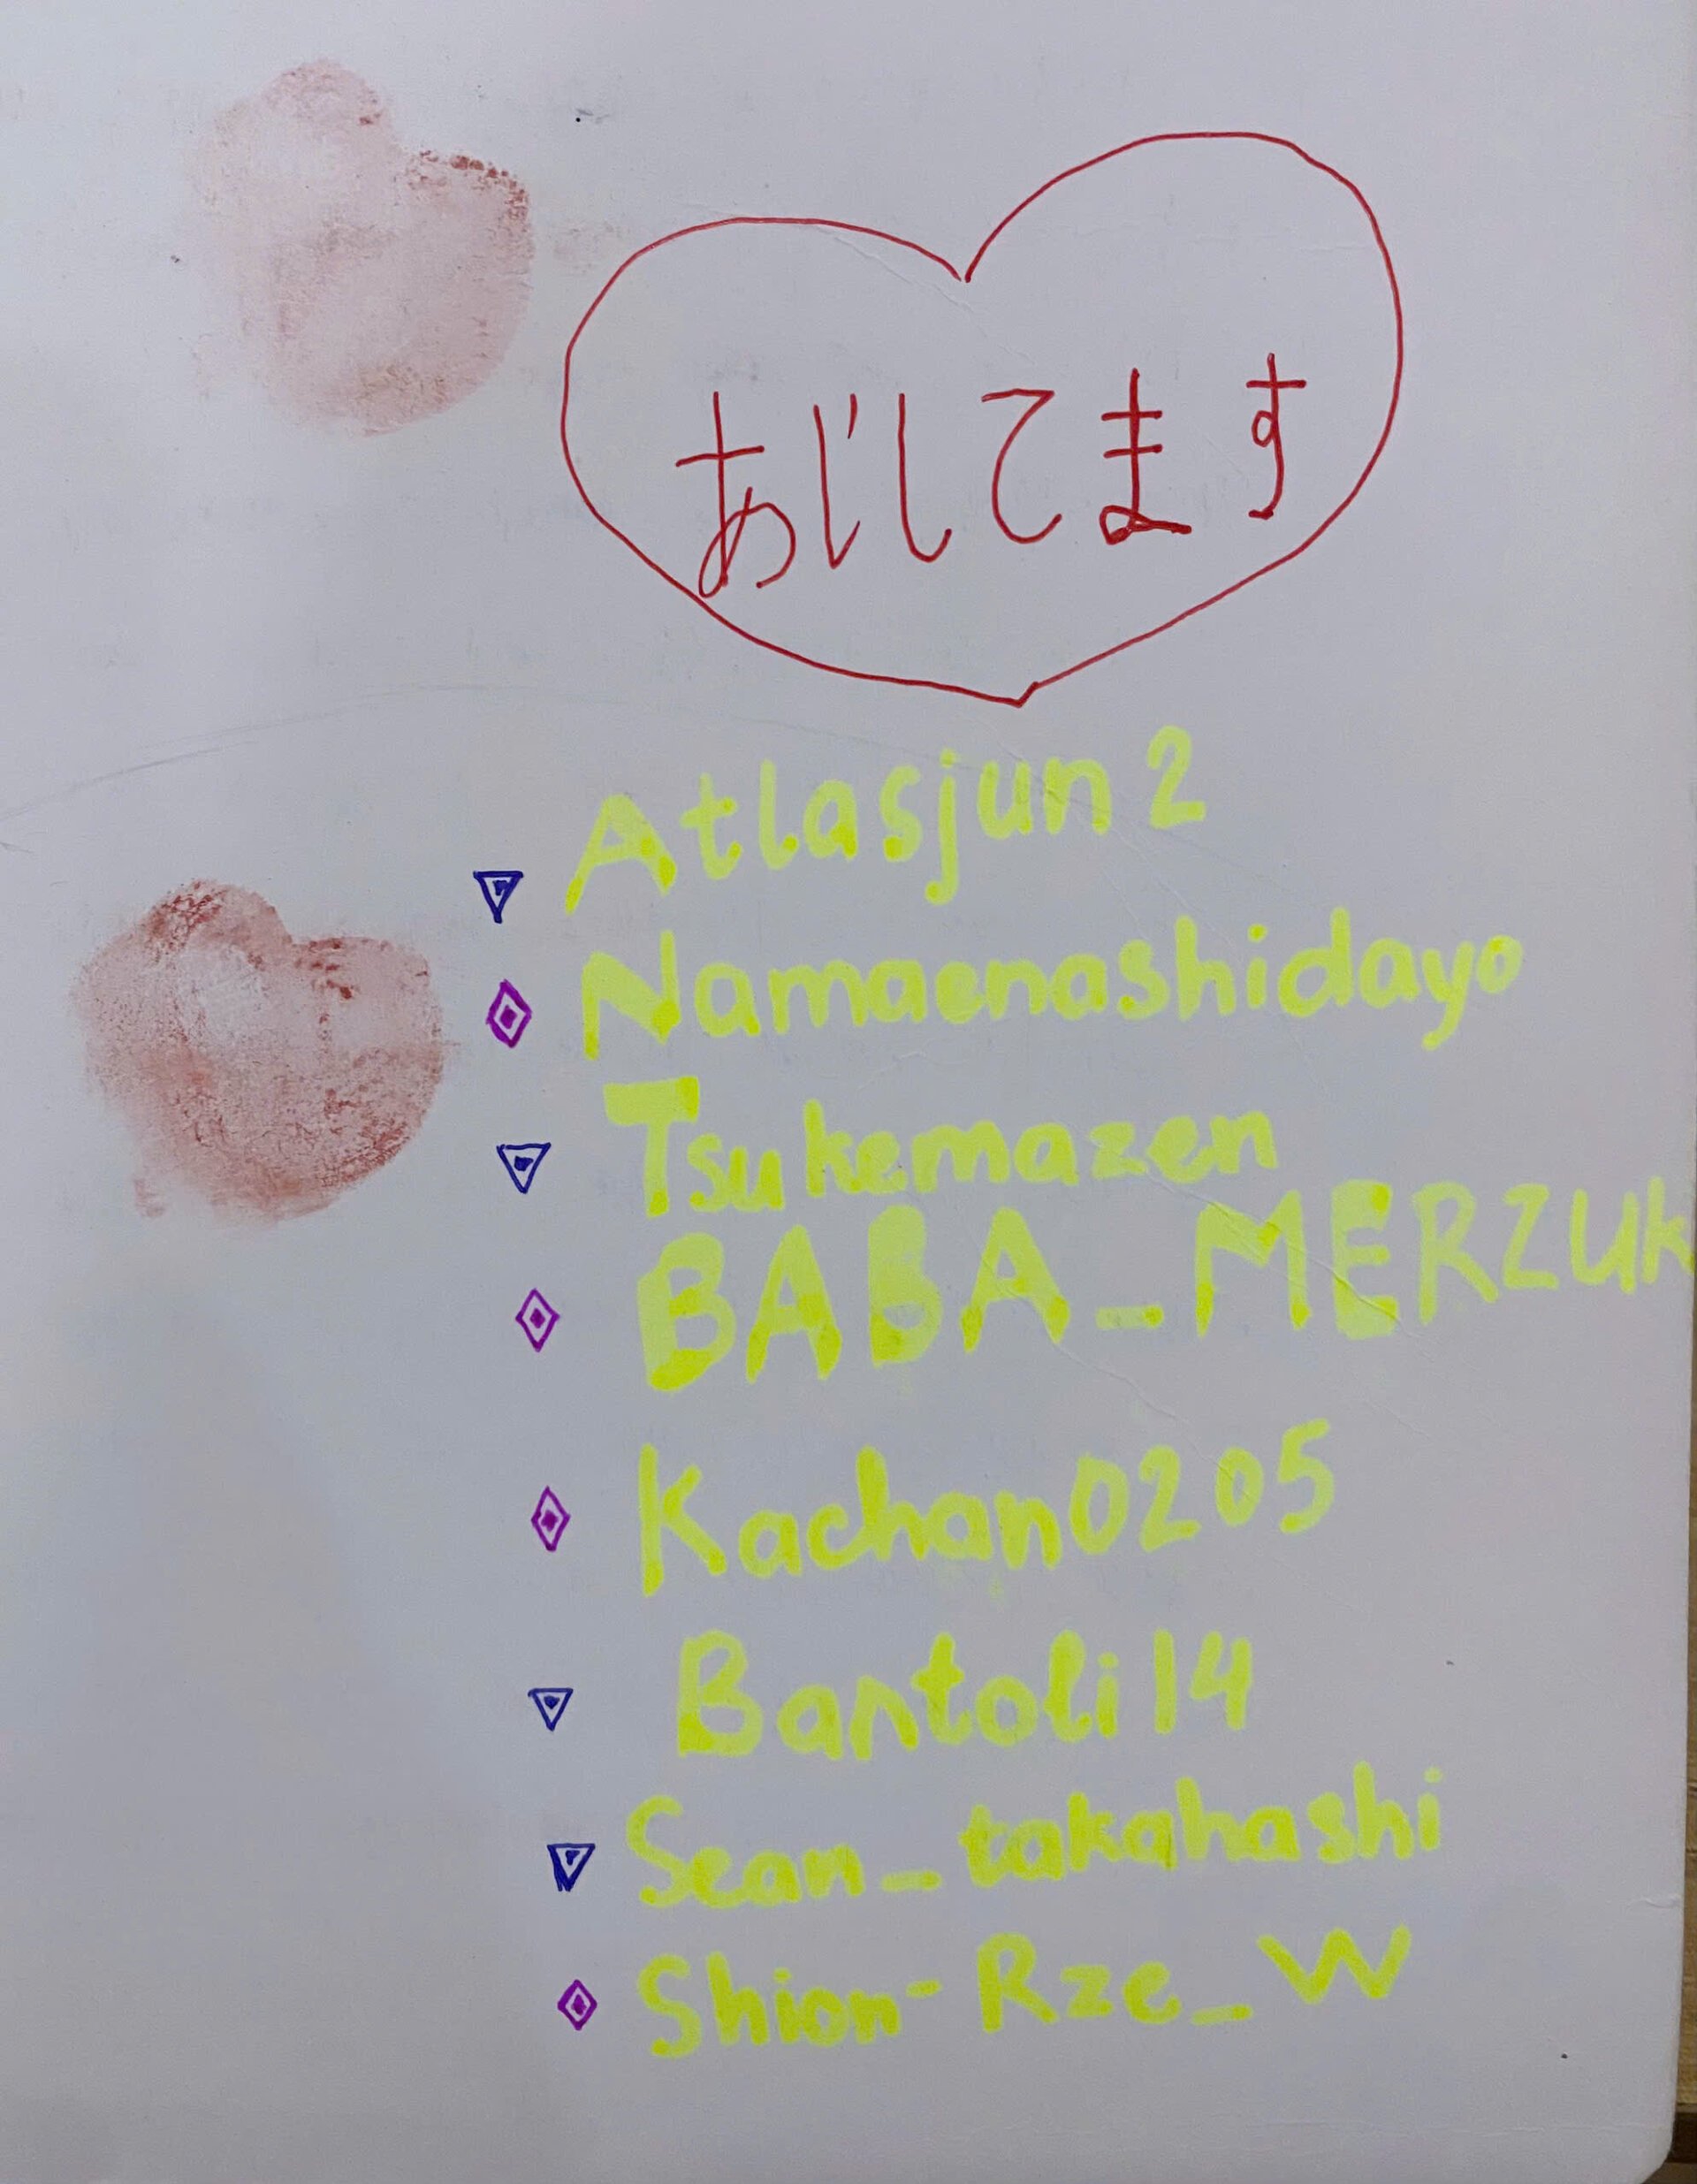 あいしてます
Atlasjun2
Namaenashidayo
Tsukemazen
BABA_MERZUK
Kachan0205
Bantoli14
Sean_takahashi
Shion-Rze_W